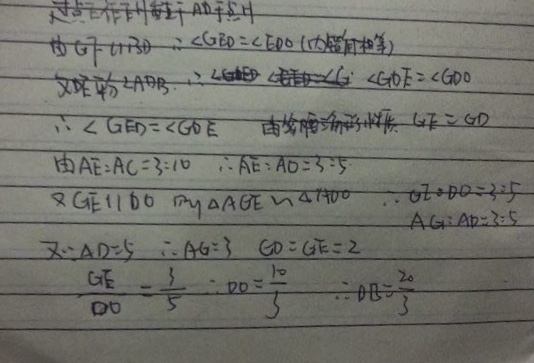 过点E作EH垂直于AD于点H
由GF∥BD ∴∠GED=∠EDO(内错角相等)
又DE平分∠ADB ∴ ∠GDE=∠GDO
∴∠GED=∠GDE 由等腰三角形性质 GE=GD
由AE:AC=3:10 ∴AE:AO=3:5
又GE∥DO 则△AGE∽△ADO ∴GE:DO=3:5
AG:AD=3:5
又∵AD=5 ∴AG=3 GD=GE=2
GE/DO=3/5 ∴DO=10/3 ∴DB=20/3